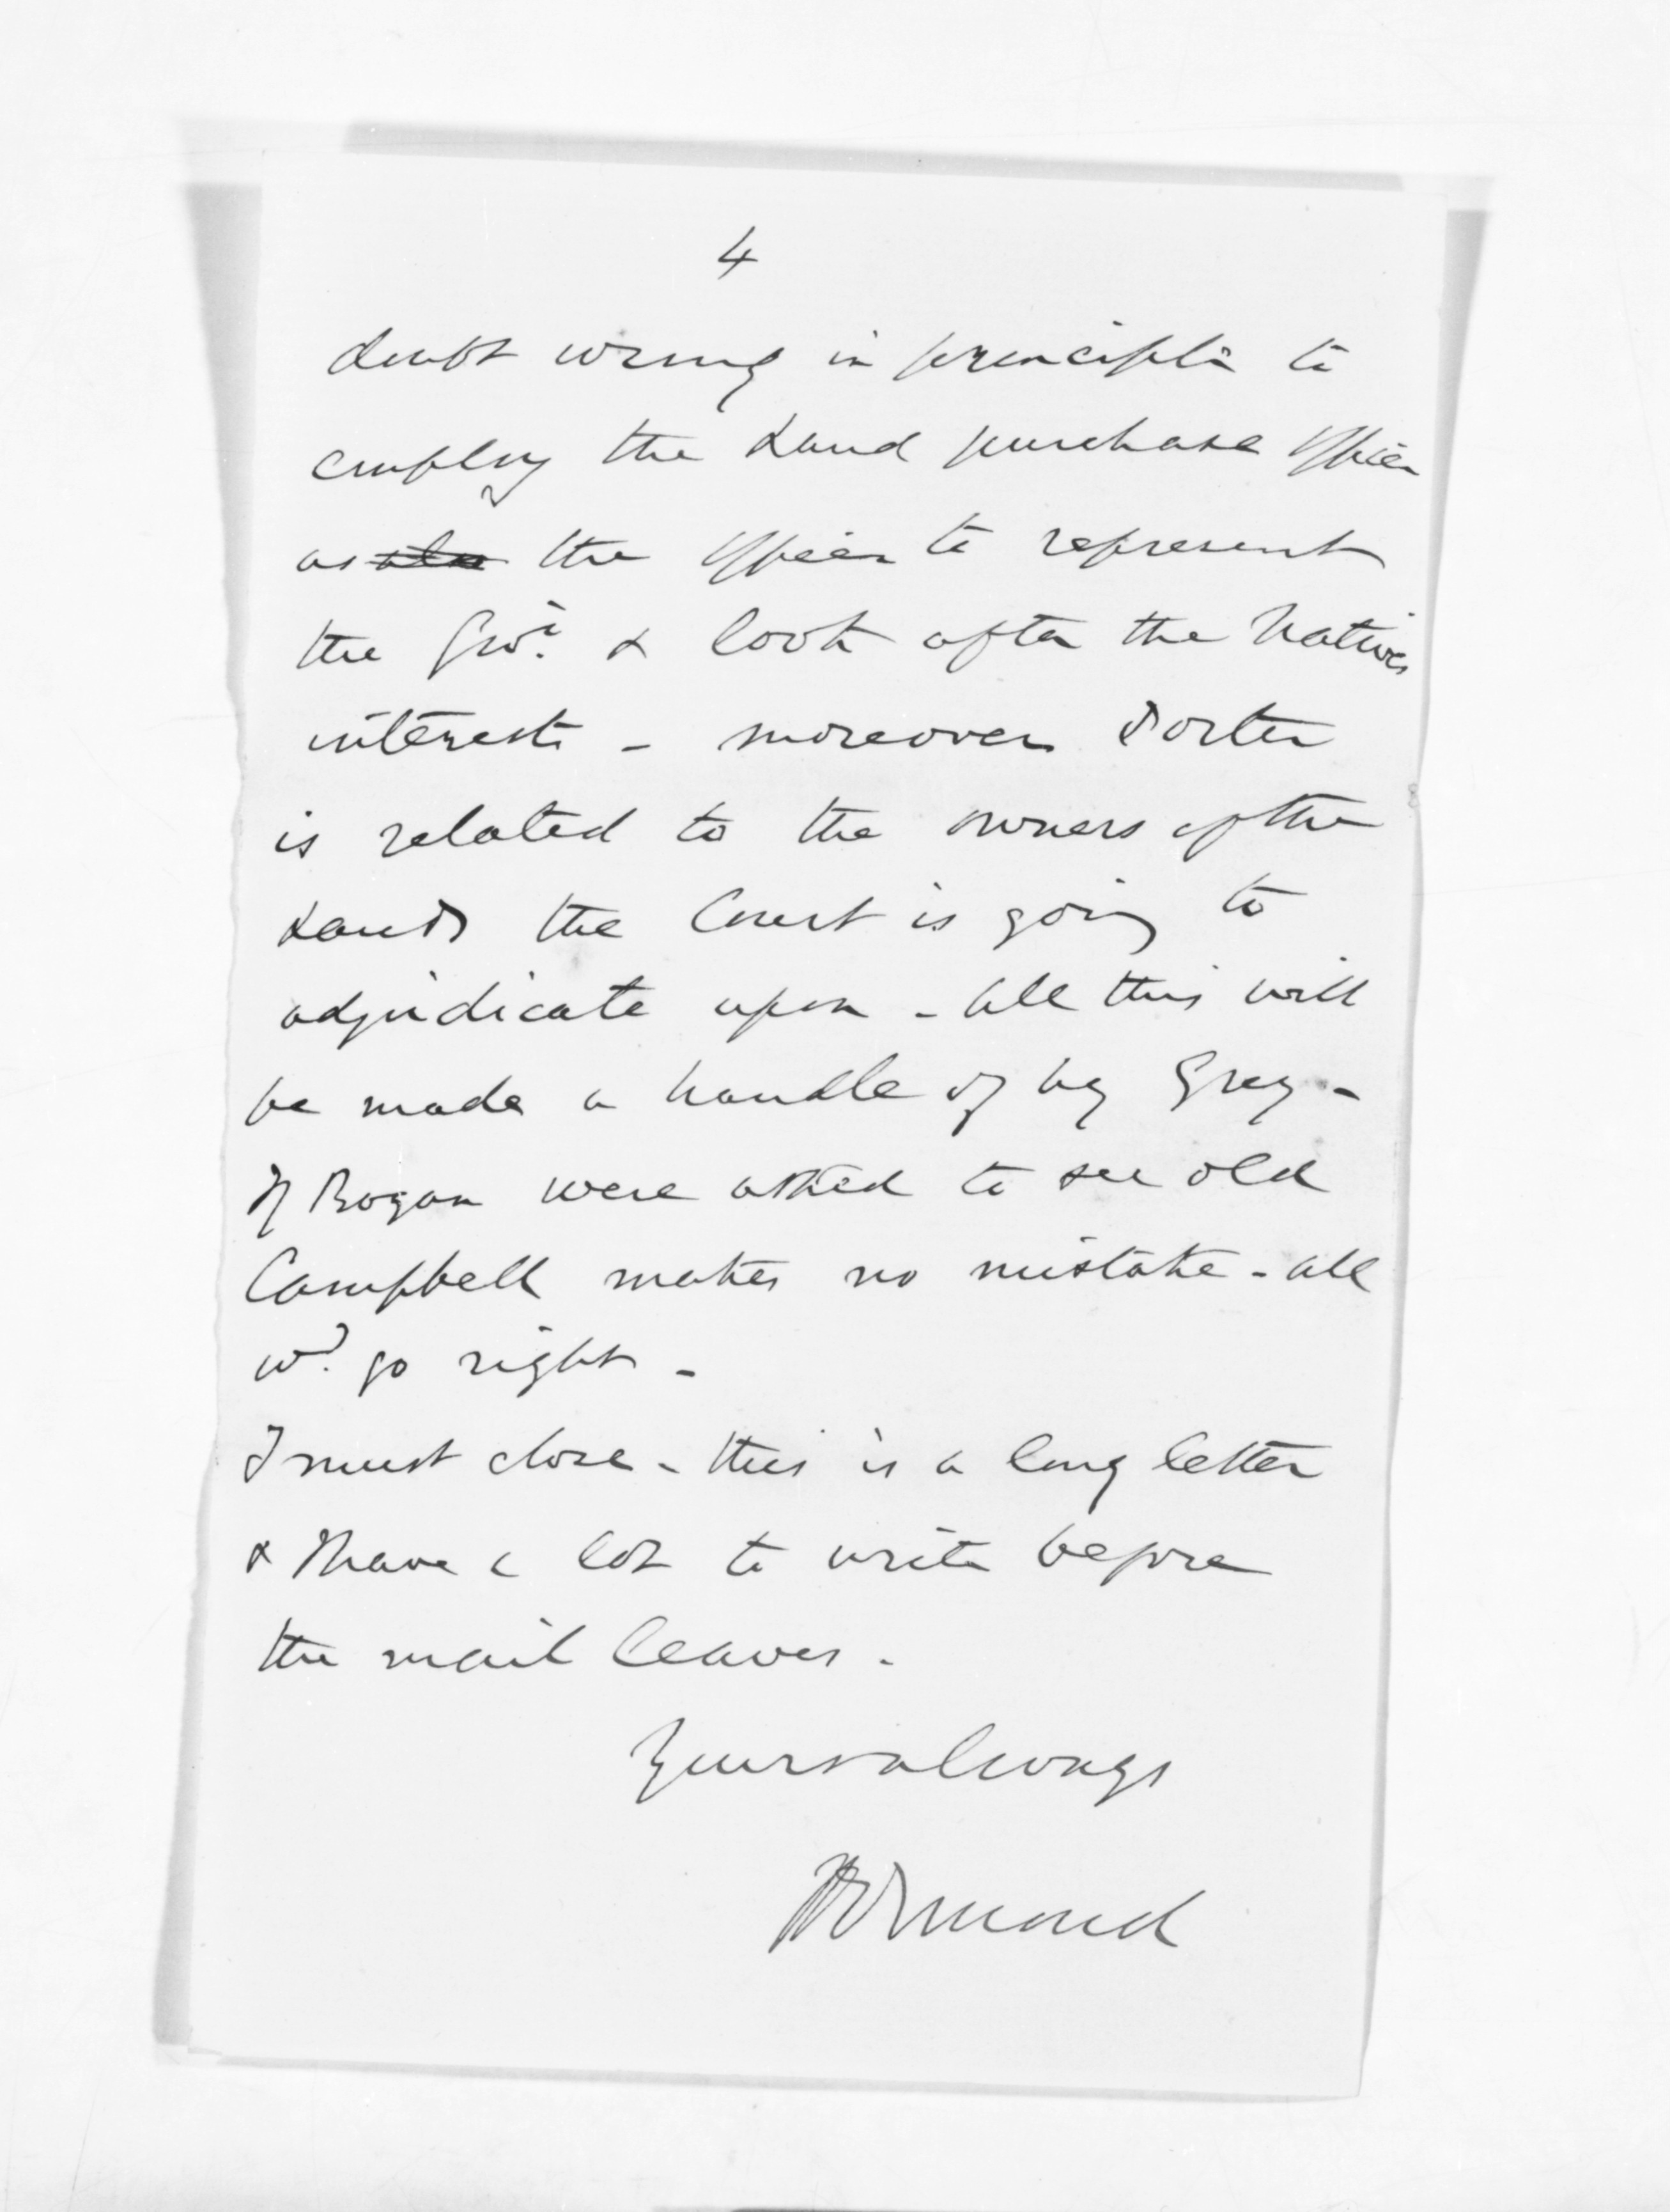 4
doubt wrong in principle to
employ the Land purchase Officer
as the Officer to represent
the Govt. & look after the Natives
interests - moreover Porter
is related to the owners of the
Lands the Court is going to
adjudicate upon - all this will
be made a handle of by Grey -
If Rogan were asked to see old
Campbell makes no mistake - all
wd. go right -
I must close - this is a long letter
& I have a lot to write before
the mail leaves.
Yours always
Ormond